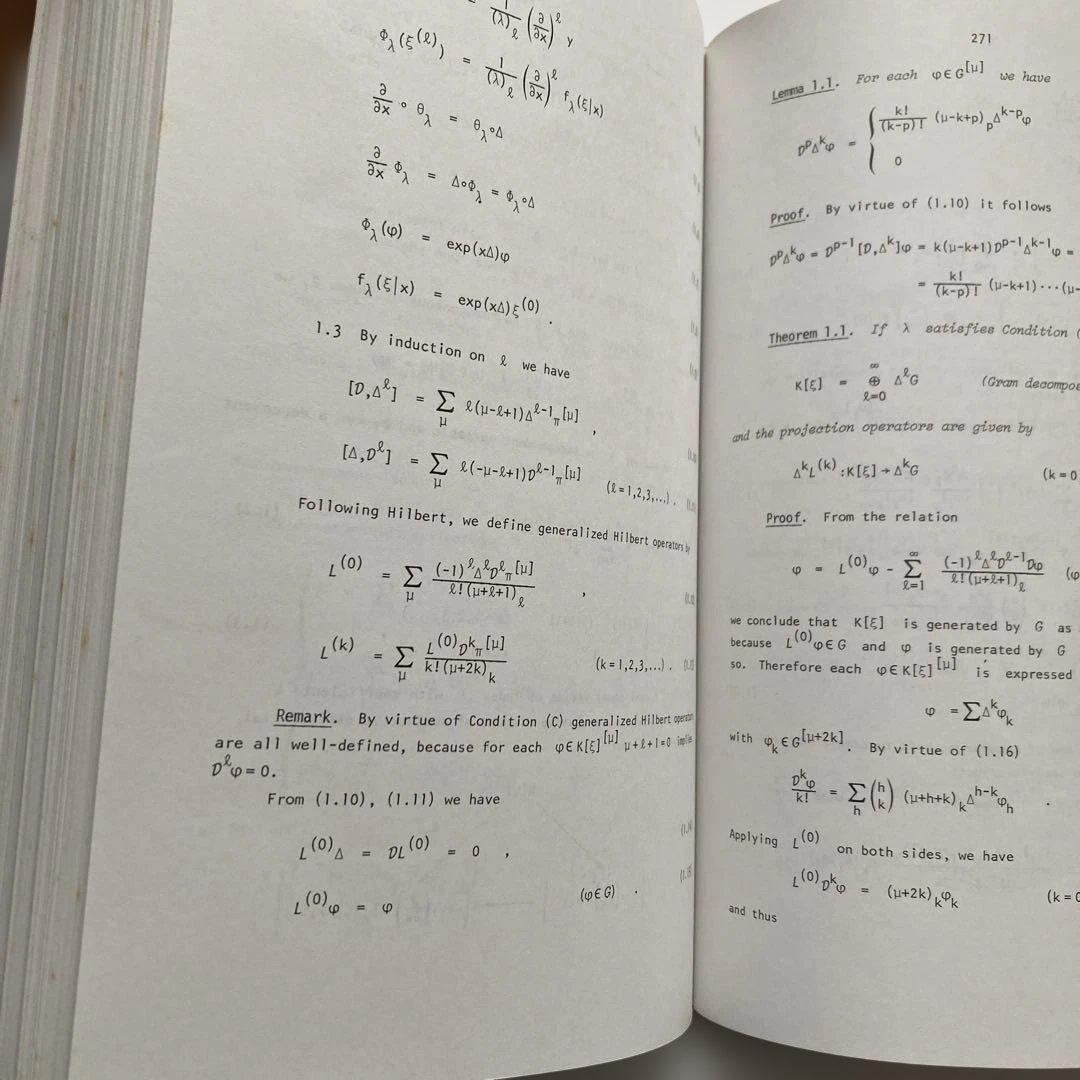 = 1/(λ)_ℓ (∂/∂x)^ℓ y
Φ_λ(ξ^(ℓ)) = 1/(λ)_ℓ (∂/∂x)^ℓ f_λ(ξ|x)
∂/∂x ∘ θ_λ = θ_λ∘Δ
∂/∂x Φ_λ = Δ∘Φ_λ = Φ_λ∘Δ
Φ_λ(φ) = exp(xΔ)φ
f_λ(ξ|x) = exp(xΔ)ξ^(0) .
1.3 By induction on ℓ we have
[D,Δ^ℓ] = ∑_μ ℓ(μ-ℓ+1)Δ^{ℓ-1}π^[μ] ,
[Δ,D^ℓ] = ∑_μ ℓ(-μ-ℓ+1)D^{ℓ-1}π^[μ] (ℓ=1,2,3,...) .
Following Hilbert, we define generalized Hilbert operators by
L^(0) = ∑_μ (-1)^ℓ Δ^ℓ D^ℓ π^[μ] / ℓ!(μ+ℓ+1)_ℓ ,
L^(k) = ∑_μ L^(0) D^k π^[μ] / k!(μ+2k)_k (k=1,2,3,...) .
Remark. By virtue of Condition (C) generalized Hilbert operators
are all well-defined, because for each φ∈K[ξ]^[μ] μ+ℓ+1=0 implies
D^ℓ φ=0.
From (1.10), (1.11) we have
L^(0)Δ = DL^(0) = 0 ,
L^(0)φ = φ (φ∈G) .
271
Lemma 1.1. For each φ∈G^[μ] we have
D^p Δ^k φ = { k!/(k-p)! (μ-k+p)_p Δ^{k-p}φ
0
Proof. By virtue of (1.10) it follows
D^p Δ^k φ = D^{p-1}[D,Δ^k]φ = k(μ-k+1)D^{p-1}Δ^{k-1}φ =
= k!/(k-p)! (μ-k+1)···(μ-
Theorem 1.1. If λ satisfies Condition (
K[ξ] = ⊕_{ℓ=0}^∞ Δ^ℓ G (Gram decompo
and the projection operators are given by
Δ^k L^(k) :K[ξ]→Δ^k G (k=0
Proof. From the relation
φ = L^(0)φ - ∑_{ℓ=1}^∞ (-1)^ℓ Δ^ℓ D^{ℓ-1} Dφ / ℓ!(μ+ℓ+1)_ℓ (φ
we conclude that K[ξ] is generated by G as
because L^(0)φ∈G and φ is generated by G
so. Therefore each φ∈K[ξ]^[μ] is expressed
φ = ∑Δ^k φ_k
with φ_k∈G^[μ+2k]. By virtue of (1.16)
D^k φ/k! = ∑_h (h k) (μ+h+k)_k Δ^{h-k} φ_h .
Applying L^(0) on both sides, we have
L^(0) D^k φ = (μ+2k)_k φ_k (k=0
and thus